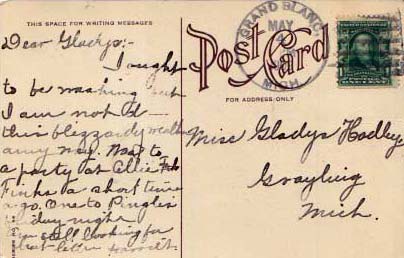 THIS SPACE FOR WRITING MESSAGES
Post Card
FOR ADDRESS ONLY
GRAND BLANC,
MAY
MICH.
Dear Gladys:-
I ought
to be washing but
I am not I —
this blizzardy weather
any way. Was to
a party at Ollie
Finks a short time
ago. One to Pingles
day night
am still looking for
that letter Harriet
Miss Gladys Hadley
Grayling
Mich.